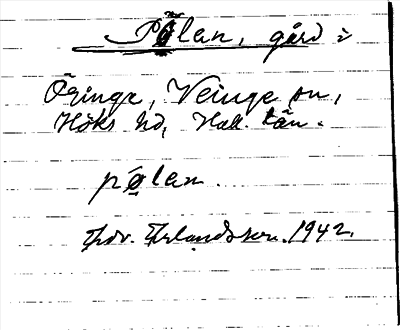 Pölen, gård i
Öringe, Veinge sn,
Höks hd, Hall. län.
pølen.
Edv. Erlandsson. 1942.